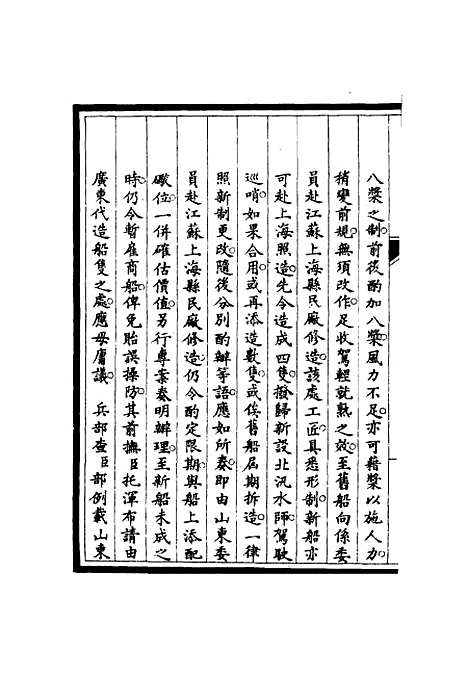 八槳之制。前後酌加八槳。風力不足。亦可藉槳以施人力。
稍變前規。無須改作。足收駕輕就熟之效。至舊船向係委
員赴江蘇上海縣民廠修造。該處工匠具悉形制。新船亦
可赴上海照造。先令造成四隻。撥歸新設北汛水師。駕駛
巡哨。如果合用。或再添造數隻。或俟舊船屆期拆造。一律
照新制更改。隨後分別酌辦等語。應如所奏。即由山東委
員赴江蘇上海縣民廠修造。仍令酌定限期。與船上添配
礮位。一併確估價值。另行專案奏明辦理。至新船未成之
時。仍令暫雇商船。俾免貽誤操防。其前撫臣托渾布請由
廣東代造船隻之處。應毋庸議。 兵部查臣部例載山東